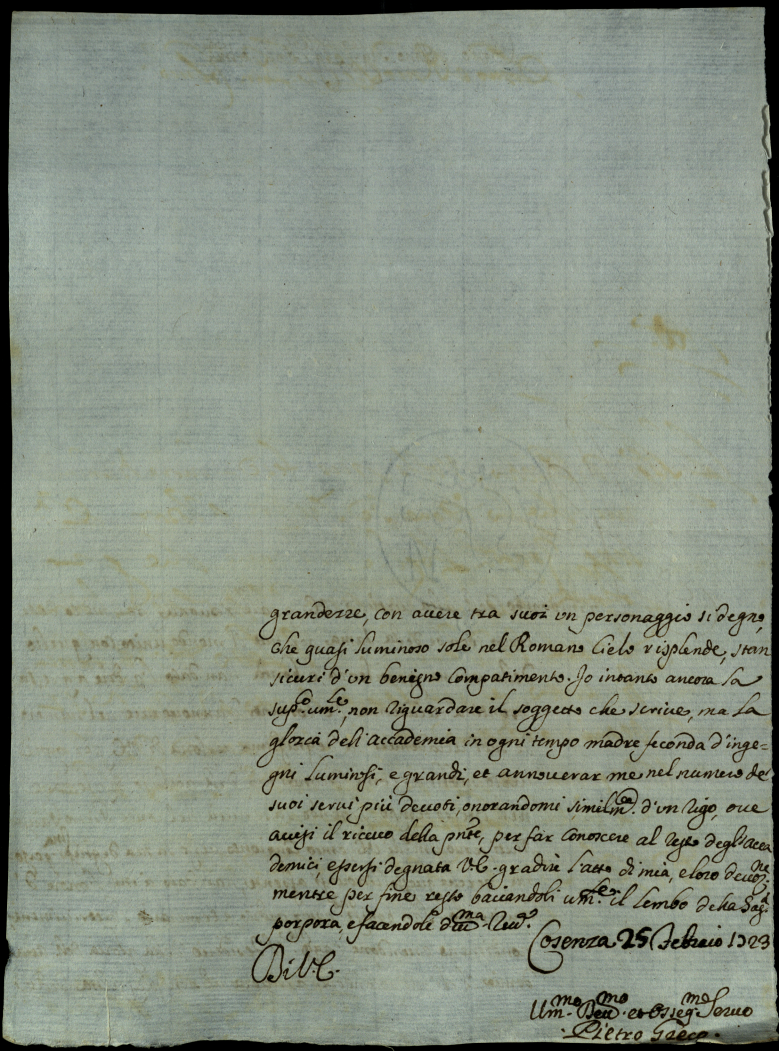 grandezze, con avere tra suoi un personaggio si degno,
che quasi luminoso sole nel Romano Cielo risplende, stan
sicuri d'un benigno compatimento. Io intanto ancora la
supp.co um.te, non riguardare il soggetto che scrive, ma la
gloria dell'accademia in ogni tempo madre feconda d'inge-
gni luminosi, e grandi, et annoverar me nel numero de
suoi servi più devoti, onorandomi similm.te d'un rigo, ove
avisi il ricevo della pnte, per far conoscere al resto degl'acca
demici, essersi degnata V.E. gradire l'atto di mia, e loro devo.ne
mentre per fine resto baciandoli um.te il lembo della Sag.a
porpora, e facendole
Cosenza 25 Febraio 1723
Di V.E.
Um.mo Dev.mo et Osseq.mo Servo
Pietro Greco.